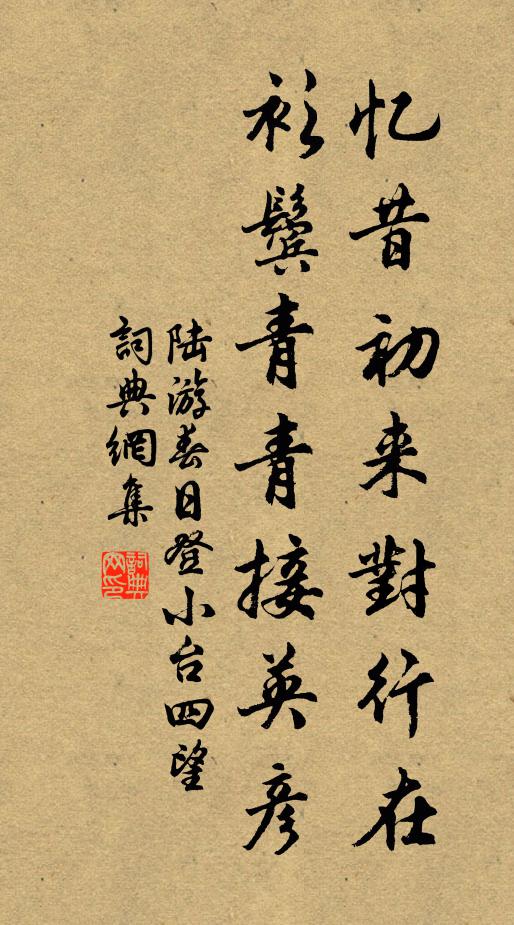 忆昔初来對行在
衫鬓青青接英彦
陆游春日登小台四望
詞典網集
詞典网印